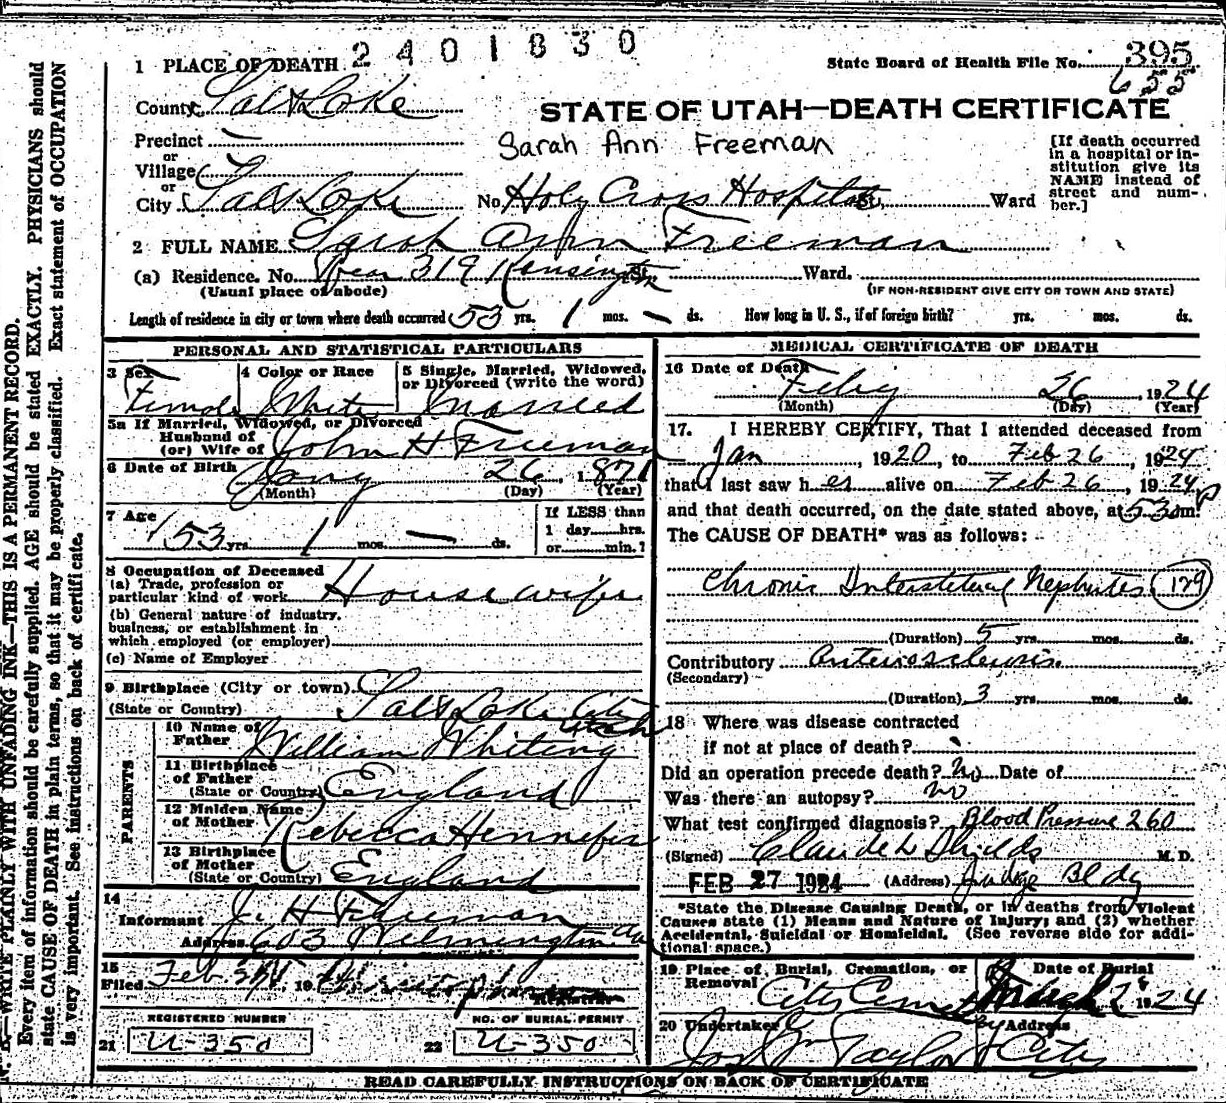 2401830
1 PLACE OF DEATH
State Board of Health File No. 395
655
County Salt Lake
STATE OF UTAH—DEATH CERTIFICATE
Precinct
or
Village
or
City Salt Lake
Sarah Ann Freeman
No. Holy Cross Hospital St., Ward
[If death occurred
in a hospital or in-
stitution give its
NAME instead of
street and num-
ber.]
2 FULL NAME Sarah Ann Freeman
(a) Residence. No. Rear 319 Kensington St. Ward.
(Usual place of abode)
(IF NON-RESIDENT GIVE CITY OR TOWN AND STATE)
Length of residence in city or town where death occurred 53 yrs. 1 mos. — ds. How long in U. S., if of foreign birth? yrs. mos. ds.
PERSONAL AND STATISTICAL PARTICULARS
3 Sex
Female
4 Color or Race
White
5 Single, Married, Widowed,
or Divorced (write the word)
Married
5a If Married, Widowed, or Divorced
Husband of
(or) Wife of John H Freeman
6 Date of Birth Jany 26, 1871
(Month) (Day) (Year)
7 Age
53 yrs. 1 mos. — ds.
If LESS than
1 day hrs.
or min.?
8 Occupation of Deceased
(a) Trade, profession or
particular kind of work Housewife
(b) General nature of industry,
business, or establishment in
which employed (or employer)
(c) Name of Employer
9 Birthplace (City or town) Salt Lake City
(State or Country) Utah
PARENTS
10 Name of
Father William Whiting
11 Birthplace
of Father
(State or Country) England
12 Maiden Name
of Mother Rebecca Hennefer
13 Birthplace
of Mother
(State or Country) England
14
Informant J. H. Freeman
Address 603 Wilmington Av
15
Filed Feb 19
Registrar
REGISTERED NUMBER
21 U-350
NO. OF BURIAL PERMIT
22 U-350
MEDICAL CERTIFICATE OF DEATH
16 Date of Death
Feby 26, 1924
(Month) (Day) (Year)
17. I HEREBY CERTIFY, That I attended deceased from
Jan, 1920, to Feb 26, 1924
that I last saw her alive on Feb 26, 1924
and that death occurred, on the date stated above, at 530 P m.
The CAUSE OF DEATH* was as follows:
Chronic Interstitial Nephritis 129
(Duration) 5 yrs. mos. ds.
Contributory Arteriosclerosis
(Secondary)
(Duration) 3 yrs. mos. ds.
18 Where was disease contracted
if not at place of death?
Did an operation precede death? No Date of
Was there an autopsy? No
What test confirmed diagnosis? Blood Pressure 260
(Signed) Claude L Shields M. D.
FEB 27 1924 (Address) Judge Bldg
*State the Disease Causing Death, or in deaths from Violent
Causes state (1) Means and Nature of Injury; and (2) whether
Accidental, Suicidal or Homicidal. (See reverse side for addi-
tional space.)
19 Place of Burial, Cremation, or
Removal City Cemetery
Date of Burial
March 2 1924
20 Undertaker
Jos Wm Taylor
Address
City
READ CAREFULLY INSTRUCTIONS ON BACK OF CERTIFICATE
N. B.—WRITE PLAINLY WITH UNFADING INK—THIS IS A PERMANENT RECORD.
Every item of information should be carefully supplied. AGE should be stated EXACTLY. PHYSICIANS should
state CAUSE OF DEATH in plain terms, so that it may be properly classified. Exact statement of OCCUPATION
is very important. See instructions on back of certificate.